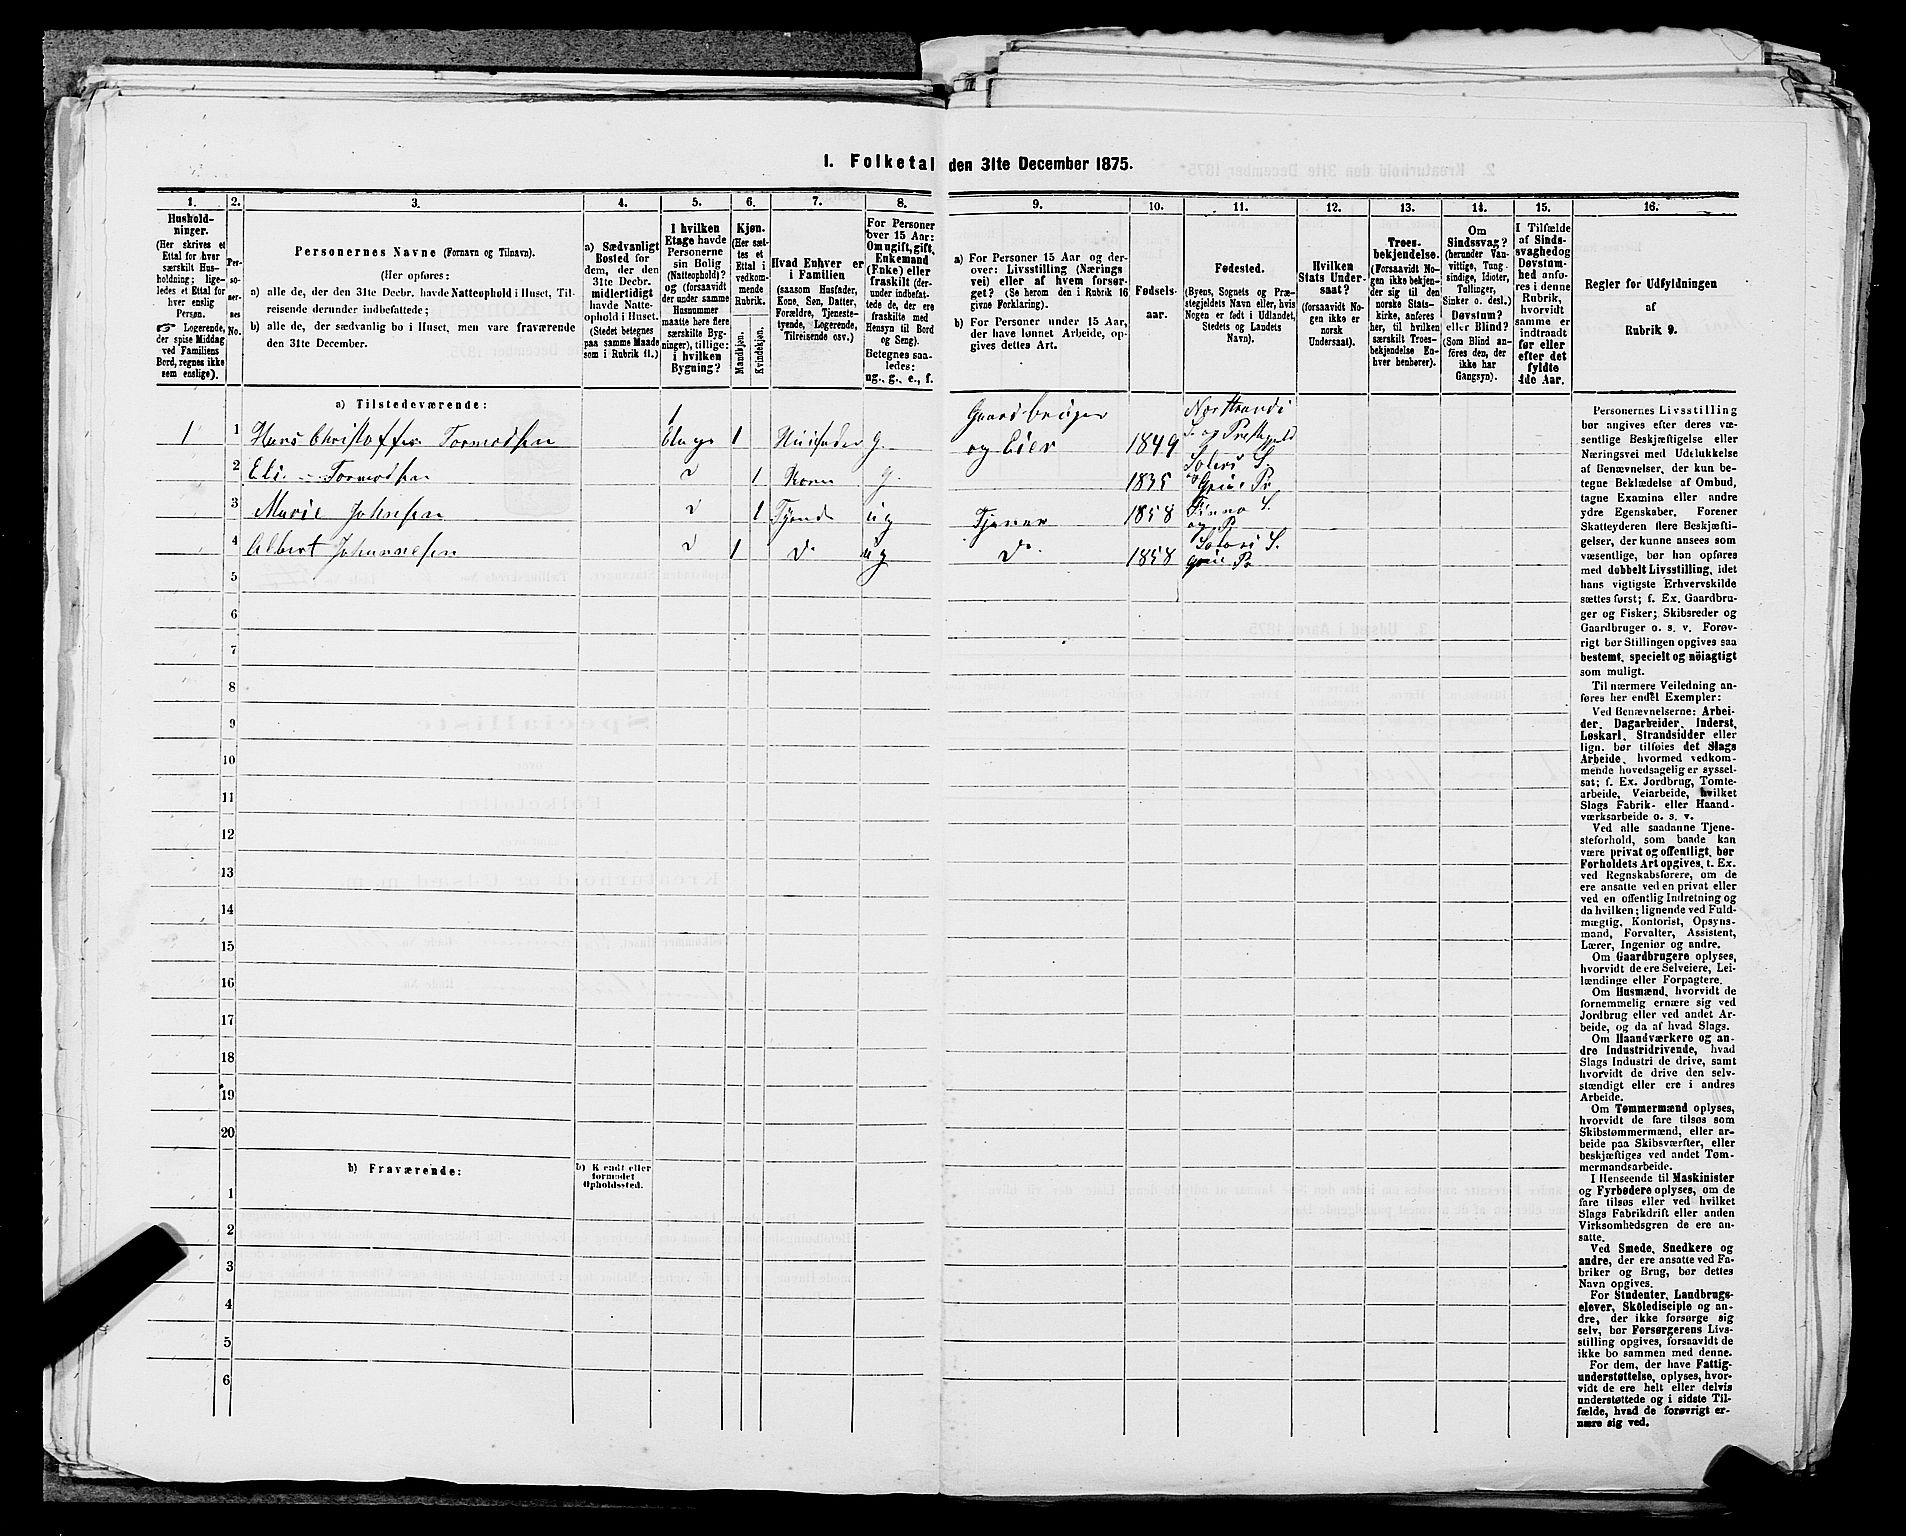 1. Folketal den 31te December 1875.
1.
2.
3.
4.
5.
6.
7.
8.
9.
10.
11.
12.
13.
14.
15.
16.
Hushold-
ninger.
(Her skrives et
Ettal for hver
særskilt Hus-
holdning; lige-
ledes et Ettal for
hver enslig
Person.
☞ Logerende,
der spise Middag
ved Familiens
Bord, regnes ikke
som enslige).
Per-
so-
ner-
nes
No.
Personernes Navne (Fornavn og Tilnavn).
(Her opføres:
a) alle de, der den 31te Decbr. havde Natteophold i Huset, Til-
reisende derunder indbefattede;
b) alle de, der sædvanlig bo i Huset, men vare fraværende
den 31te December.
a) Sædvanligt
Bosted for
dem, der den
31te Decbr.
midlertidigt
havde Natte-
ophold i Huset.
(Stedet betegnes
paa samme Maade
som i Rubrik 11.)
I hvilken
Etage havde
Personerne
sin Bolig
(Natteophold)?
og (forsaavidt
der under samme
Husnummer
maatte høre flere
særskilte Byg-
ninger), tillige:
i hvilken
Bygning?
Kjøn.
(Her sæt-
tes et
Ettal i
vedkom-
mende
Rubrik.
Mandkjøn.
Kvindekjøn.
Hvad Enhver er
i Familien
(saasom Husfader,
Kone, Søn, Datter,
Forældre, Tjeneste-
tyende, Logerende,
Tilreisende osv.)
For Personer
over 15 Aar:
Om ugift, gift,
Enkemand
(Enke) eller
fraskilt (der-
under indbefat-
tede de, der ere
fraskilte med
Hensyn til Bord
og Seng).
Betegnes saa-
ledes:
ug., g., e., f.
a) For Personer 15 Aar og der-
over: Livsstilling (Nærings
vei) eller af hvem forsør-
get? (Se herom den i Rubrik 16
givne Forklaring).
b) For Personer under 15 Aar,
der have lønnet Arbeide, op-
gives dettes Art.
Fødsels-
aar.
Fødested.
(Byens, Sognets og Præ-
stegjeldets Navn eller, hvis
Nogen er født i Udlandet,
Stedets og Landets
Navn).
Hvilken
Stats Under-
saat?
(forsaavidt No-
gen ikke er
norsk
Undersaat).
Troes-
bekjendelse.
(Forsaavidt No-
gen ikke bekjen-
der sig til den
norske Stats-
kirke, anføres
her, til hvilken
særskilt Troes-
bekjendelse En-
hver henhører).
Om
Sindssvag?
(herunder Van-
vittige, Tung-
sindige, Idioter,
Tullinger,
Sinker o. desl.)
Døvstum?
eller Blind?
(Som Blind an-
føres den, der
ikke har
Gangsyn).
I Tilfælde
af Sinds-
svaghed og
Døvstum-
hed anfø-
res i denne
Rubrik,
hvorvidt
samme er
indtraadt
før eller
efter det
fyldte
4de Aar.
Regler for Udfyldningen
af
Rubrik 9.
a) Tilstedeværende:
1 1 Hans Christoffer Tormodsen 1 Etage 1 Husfader g. Gaardbruger og Eier 1849
2 Eli Tormodsen 1 Kone g. 1835
3 Marie Johnsen 1 Tyende ug Tjener 1858
4 Albert Johannesen 1 Do ug Do. 1858
5
6
7
8
9
10
11
12
13
14
15
16
17
18
19
20
b) Fraværende:
b) Kjendt eller
formodet
Opholdssted.
1
2
3
4
5
6
Personernes Livsstilling
bør angives efter deres væ-
sentlige Beskjæftigelse eller
Næringsvei med Udelukkelse
af Benævnelser, der kun be-
tegne Beklædelse af Ombud,
tagne Examina eller andre
ydre Egenskaber. Forener
Skatteyderen flere Beskjæfti-
gelser, der kunne ansees som
væsentlige, bør han opføres
med dobbelt Livsstilling, idet
hans vigtigste Erhvervskilde
sættes først; f. Ex. Gaardbru-
ger og Fisker; Skibsreder og
Gaardbruger o. s. v. Forøv-
rigt bør Stillingen opgives saa
bestemt, specielt og nöiagtigt
som muligt.
Til nærmere Veiledning an-
føres her endel Exempler:
Ved Benævnelserne: Arbei-
der, Dagarbeider, Inderst,
Løskarl, Strandsidder eller
lign. bør tilføies det Slags
Arbeide, hvormed vedkom-
mende hovedsagelig er syssel-
sat; f. Ex. Jordbrug, Tomte-
arbeide, Veiarbeide, hvilket
Slags Fabrik- eller Haand-
værksarbeide o. s. v.
Ved alle saadanne Tjene-
steforhold, som baade kan
være privat og offentligt, bør
Forholdets Art opgives, f. Ex.
ved Regnskabsførere, om de
ere ansatte ved en privat eller
ved en offentlig Indretning og
da hvilken; lignende ved Fuld-
mægtig, Kontorist, Opsyns-
mand, Forvalter, Assistent,
Lærer, Ingeniør og andre.
Om Gaardbrugere oplyses,
hvorvidt de ere Selveiere, Lei-
lændinge eller Forpagtere.
Om Husmænd, hvorvidt de
fornemmelig ernære sig ved
Jordbrug eller ved andet Ar-
beide, og da af hvad Slags.
Om Haandværkere og an-
dre Industridrivende, hvad
Slags Industri de drive, samt
hvorvidt de drive den selv-
stændigt eller ere i andres
Arbeide.
Om Tømmermænd oplyses,
hvorvidt de fare tilsøs som
Skibstømmermænd, eller ar-
beide paa Skibsværfter, eller
beskjæftiges ved andet Tøm-
mermandearbeide.
I Henseende til Maskinister
og Fyrbødere oplyses, om de
fare tilsøs eller ved hvilket
Slags Fabrikdrift eller anden
Virksomhedsgren de ere an-
satte.
Ved Smede, Snedkere og
andre, der ere ansatte ved Fa-
briker og Brug, bør dettes
Navn opgives.
For Studenter, Landbrugs-
elever, Skoledisciple og an-
dre, der ikke forsørge sig
selv, bør Forsørgerens Livs-
stilling opgives, forsaavidt de
ikke bo sammen med denne.
For dem, der have Fattig-
understøttelse, oplyses, hvor-
vidt de ere helt eller delvis
understøttede og i sidste Til-
fælde, hvad de forøvrigt er-
nære sig ved.